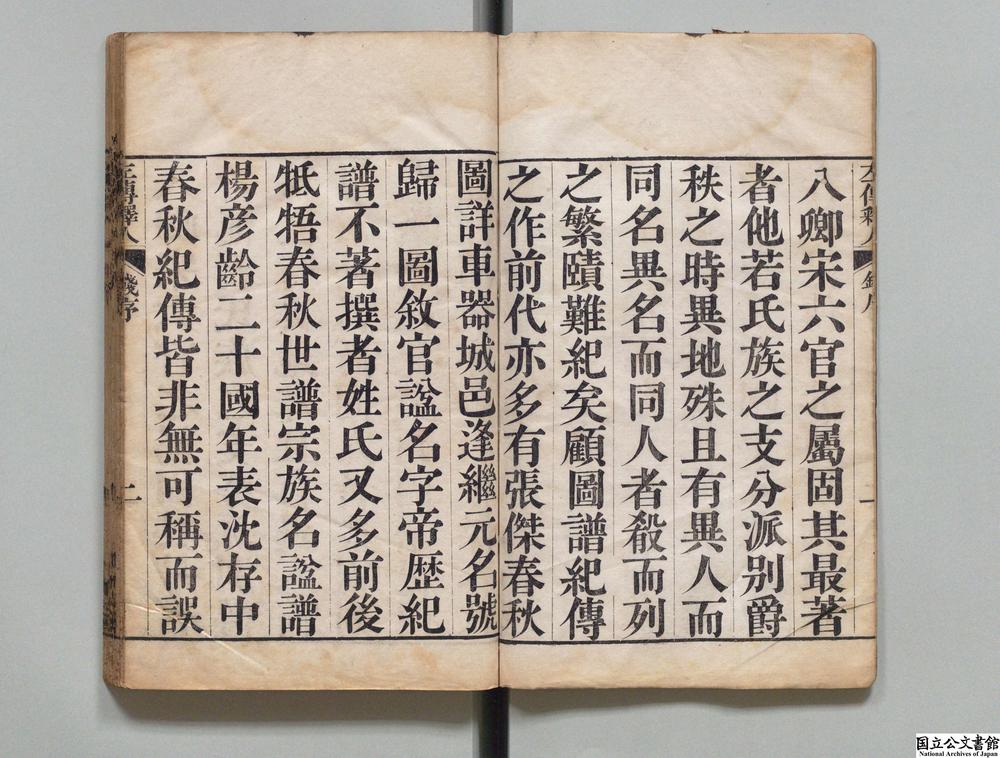 八卿宋六官之屬固其最著
者他若氏族之支分派别爵
秩之時異地殊且有異人而
同名異名而同人者殽而列
之繁賾難紀矣顧圖譜紀傳
之作前代亦多有張傑春秋
圖詳車器城邑逢繼元名號
歸一圖敘官諡名字帝歴紀
譜不著撰者姓氏又多前後
牴牾春秋世譜宗族名諡譜
楊彦齡二十國年表沈存中
春秋紀傳皆非無可稱而誤
左傳釋人
錢序
二
国立公文書館
National Archives of Japan